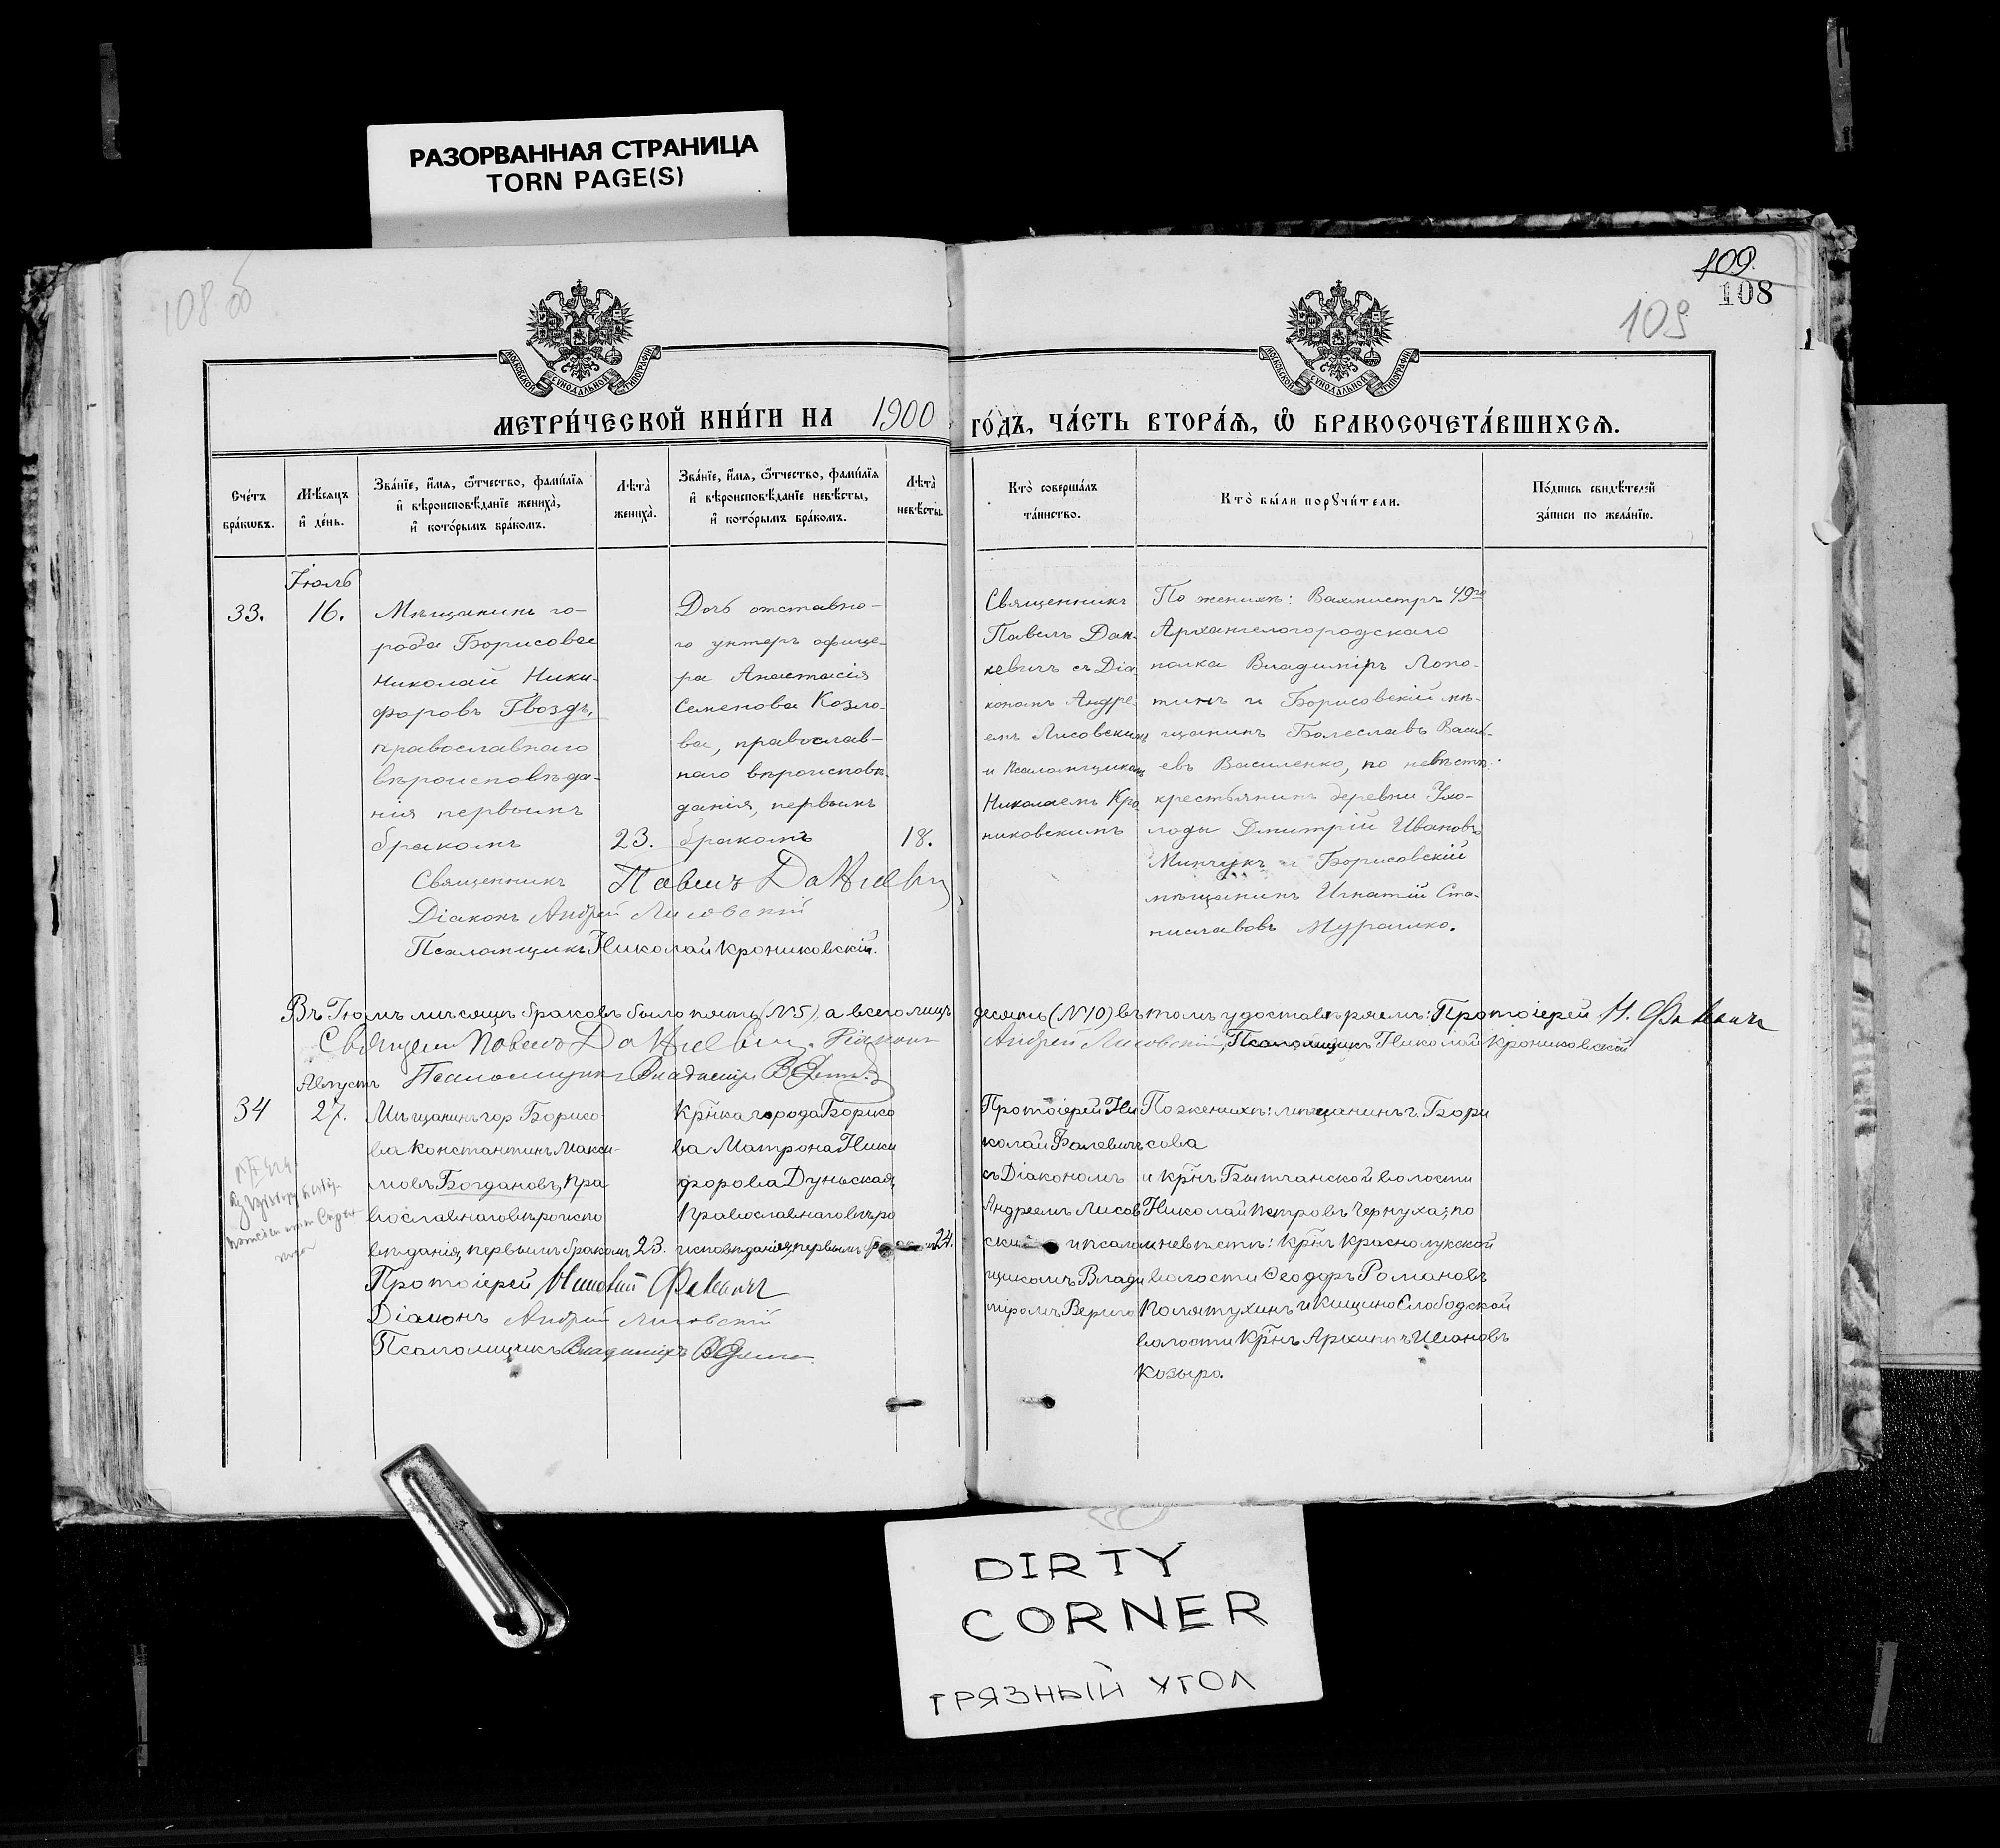 РАЗОРВАННАЯ СТРАНИЦА
TORN PAGE(S)
108 об
109.
108
109
МОСКОВСКОЙ СѴНОДАЛЬНОЙ ТИПОГРАФІИ
МОСКОВСКОЙ СѴНОДАЛЬНОЙ ТИПОГРАФІИ
МЕТРИ́ЧЕСКОЙ КНИ́ГИ НА 1900 ГО́ДЪ, ЧА́СТЬ ВТОРА́Я, Ѽ БРАКОСОЧЕТА́ВШИХСЯ.
Сче́тъ
бра́кѡвъ.
Мѣ́сяцъ
и҆ де́нь.
Зва́нїе, и҆́мя, ѻ҆́тчество, фами́лїя
и҆ вѣроисповѣ́данїе жениха̀,
и҆ кото́рымъ бра́комъ.
Лѣта̀
жениха̀.
Зва́нїе, и҆́мя, ѻ҆́тчество, фами́лїя
и҆ вѣроисповѣ́данїе невѣ́сты,
и҆ кото́рымъ бра́комъ.
Лѣта̀
невѣ́сты.
Кто̀ соверша́лъ
та́инство.
Кто̀ бы́ли порꙋчи́тели.
По́дпись свидѣ́телей
за́писи по жела́нїю.
Іюль
33.
16.
Мѣщанинъ го-
рода Борисова
Николай Ники-
форовъ Гвоздь,
православнаго
вѣроисповѣда-
нія первымъ
бракомъ
23.
Дочь отставно-
го унтеръ офице-
ра Анастасія
Семенова Козло-
ва, православ-
наго вѣроисповѣ-
данія, первымъ
бракомъ
18.
Священникъ
Павелъ Дан-
кевичъ съ Діа-
кономъ Андре-
емъ Лисовскимъ
и Псаломщикомъ
Николаемъ Кро
никовскимъ
По женихѣ: Вахмистръ 49го
Архангелогородскаго
полка Владиміръ Лопо-
тинъ и Борисовскій мѣ-
щанинъ Болеславъ Василь-
евъ Василенко, по невѣстѣ:
крестьянинъ деревни Ухо-
лоды Дмитрій Ивановъ
Минчукъ и Борисовскій
мѣщанинъ Игнатій Ста-
ниславовъ Мурашко.
Священникъ Павелъ Данкевичъ
Діаконъ Андрей Лисовскій
Псаломщикъ Николай Крониковскій.
Въ Іюлѣ мѣсяцѣ браковъ было пять (№5), а всего лицъ десять (№10) въ томъ удостовѣряемъ: Протоіерей Н. Фалевичъ
Священ Павелъ Данкевичъ. Діаконъ Андрей Лисовскій, Псаломщикъ Николай Крониковскій
Псаломщикъ Владиміръ
Августъ
34
27.
Мѣщанинъ гор Борисо
ва Константинъ Макси-
мовъ Богдановъ, пра
вославнаго вѣроиспо
вѣданія, первымъ бракомъ
23.
Кр̃нка города Борисо
ва Матрона Ники
форова Дуньская,
православнаго вѣро
исповѣданія, первымъ
24.
Протоіерей Ни
колай Фалевичъ
съ Діакономъ
Андреемъ Лисов
ски и псалом
щикомъ Влади
міромъ Вериго
По женихѣ: мѣщанинъ г. Бори
сова
и кр̃нъ Бытчанской волости
Николай Петровъ Чернуха; по
невѣстѣ: кр̃нъ Краснолукской
волости Ѳеодоръ Романовъ
Полятухинъ и Кищино Слободской
волости кр̃нъ Архипъ Ивановъ
Козыро.
Протоіерей Николай Фалевичъ
Діаконъ Андрей Лисовскій
Псаломщикъ Владиміръ
DIRTY
CORNER
ГРЯЗНЫЙ УГОЛ